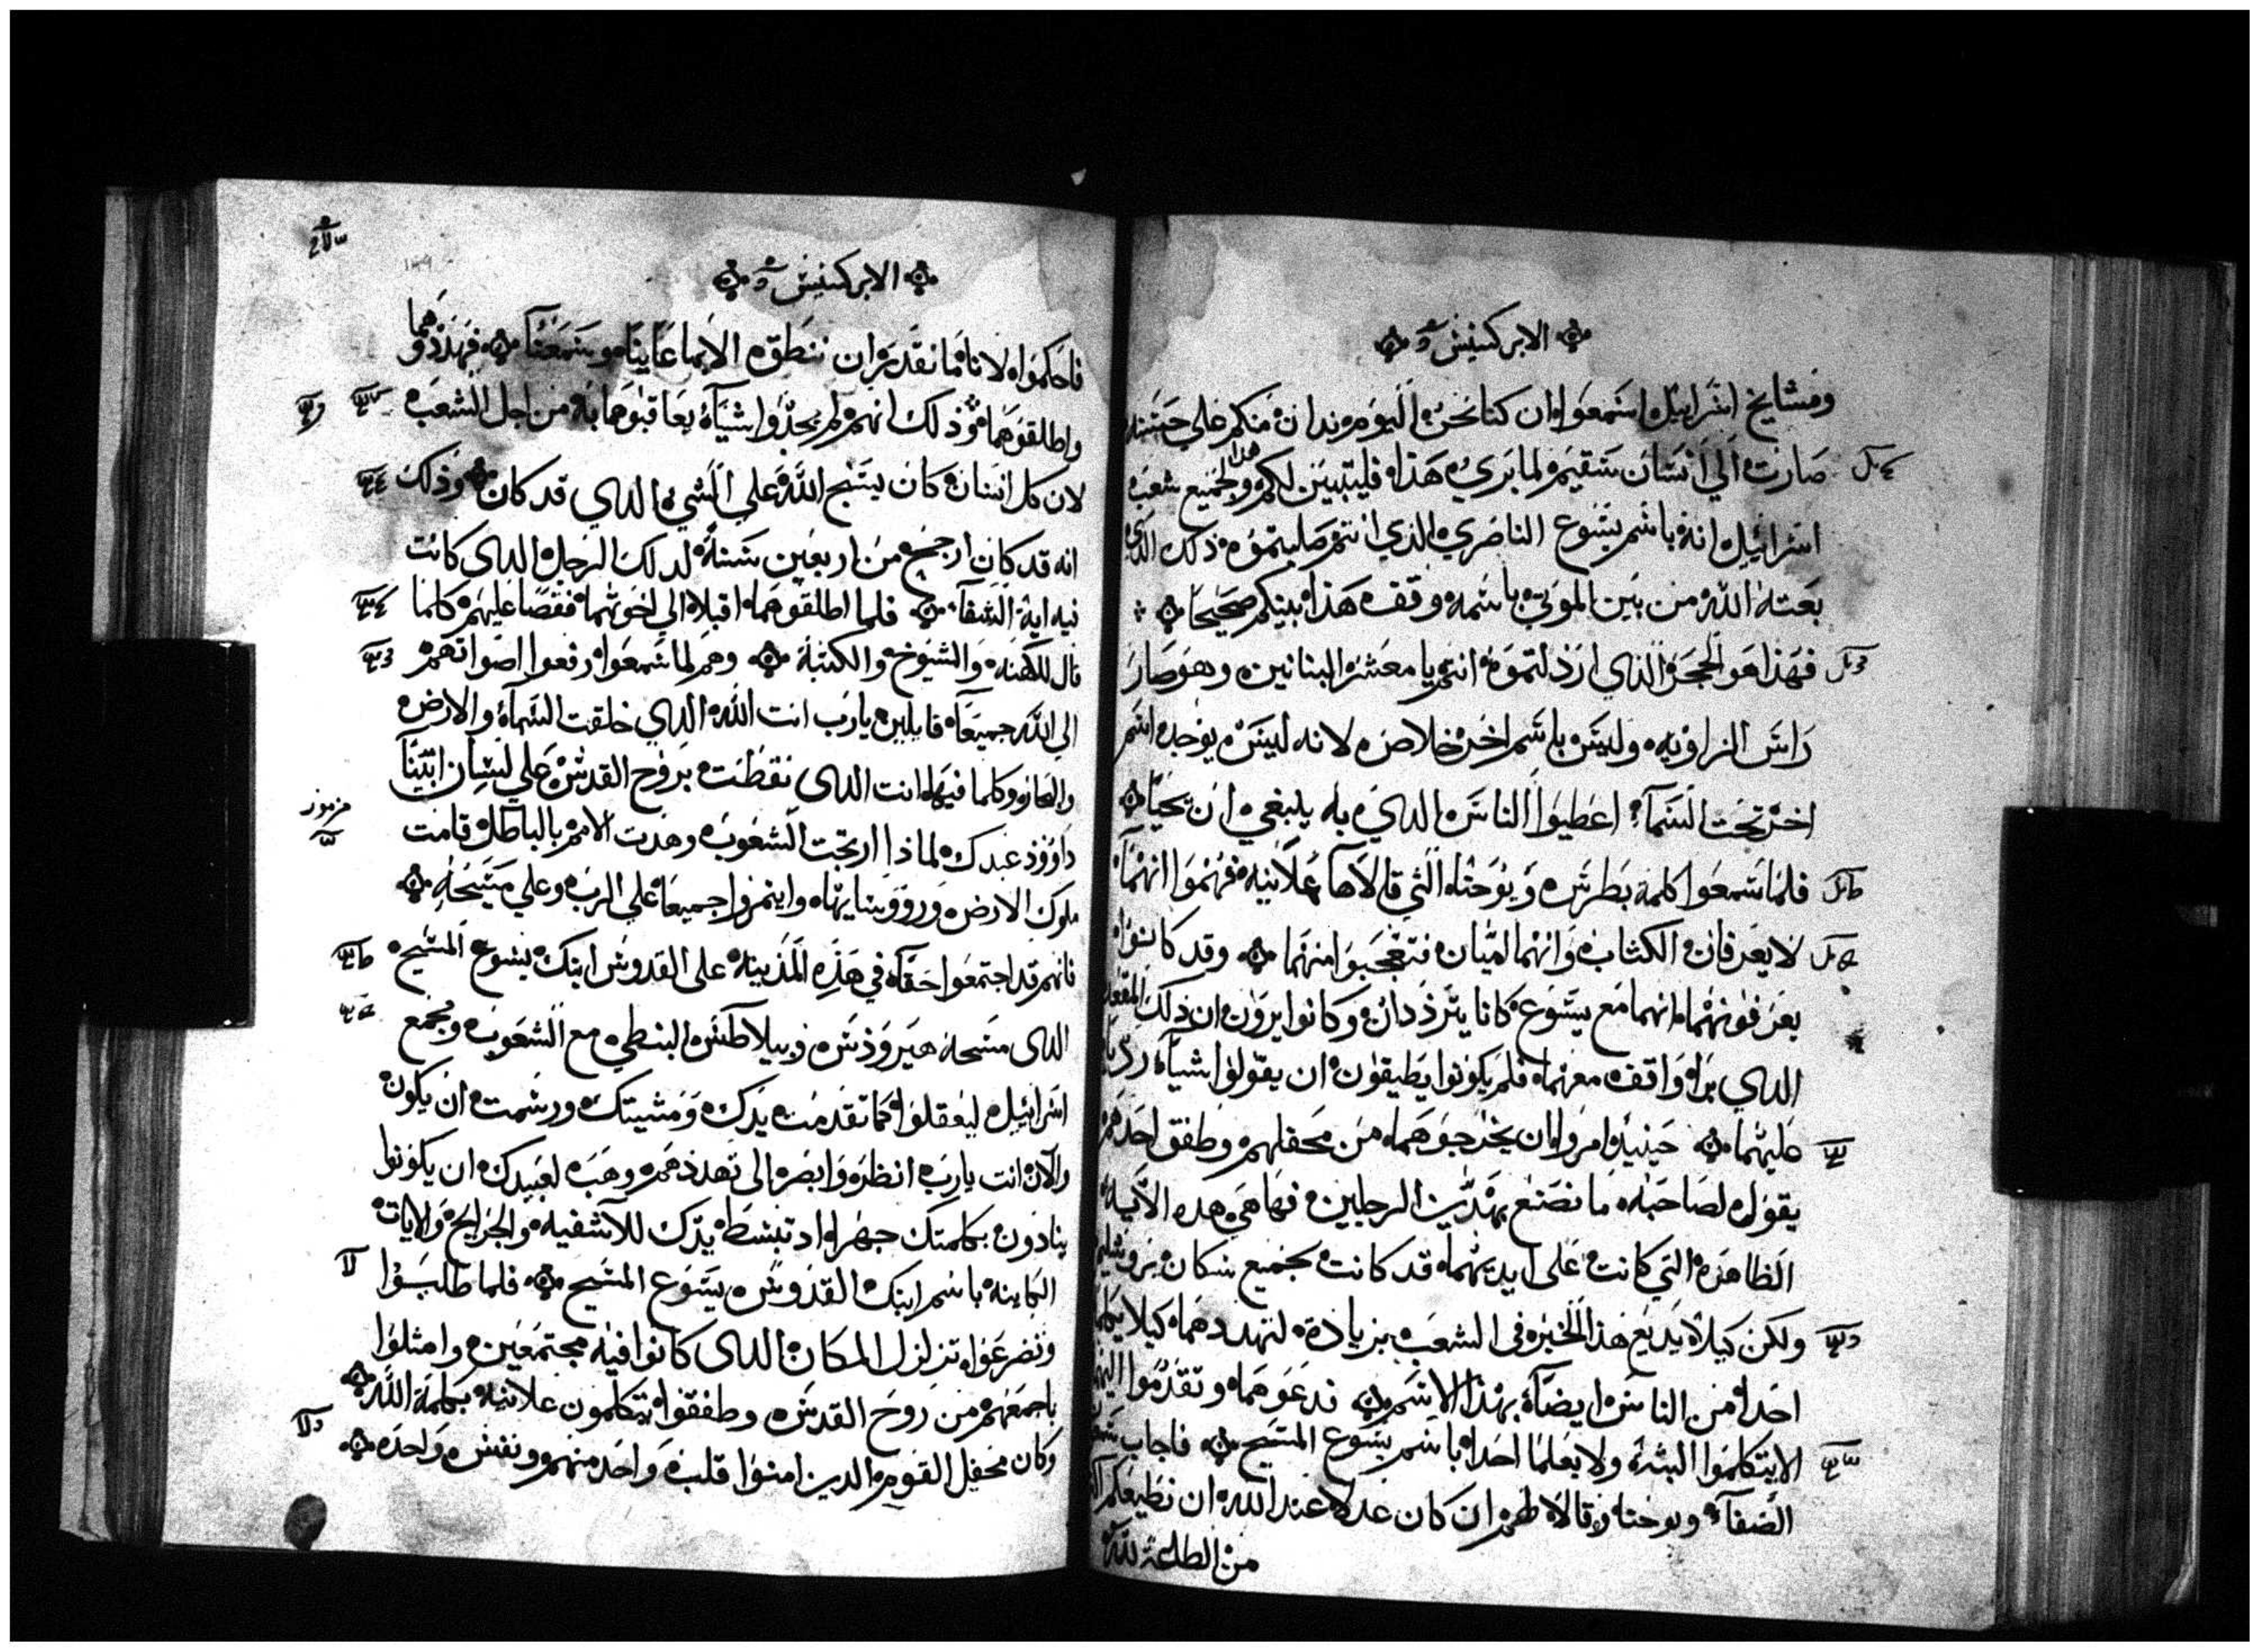 الابركسيس
ومشايخ اسراييل استمعوا ان كنا نحن اليوم ندان منكم علي حسنه
صارت الي انسان سقيم لما بري هذا فليتبين لكم هدا ولجميع شعب
اسراييل انه باسم يسوع الناصري الذي انتم صلبتموه ذلك الدي
بعثه الله من بين الموتي باسمه وقف هذا بينكم صحيحا
فهذا هو الحجر الذي ارذلتموه انتم يا معشر البنايين وهو صار
راس الزاويه وليس باسم اخر خلاص لانه ليس يوجد اسم
اخر تحت السمآء اعطيوا الناس الدي به ينبغي ان نحيا
فلما سمعوا كلمة بطرس ويوحنا التي قالاها علانيه فهموا انهما
لا يعرفان الكتاب وانهما اميان فتعجبوا منهما وقد كانوا
يعرفونهما انهما مع يسوع كانا يترددان وكانوا يرون ان ذلك المقعد
الدي برا واقف معهما فلم يكونوا يطيقون ان يقولوا اشيآء رديا
عليهما حينيذ امروا ان يخرجوهما من محفلهم وطفق احدهم
يقول لصاحبه ما نصنع بهذين الرجلين فها هي هده الآيه
الظاهره التي كانت على ايديهما قد كانت لجميع سكان يروشليم
ولكن كيلا يديع هذا الخبر في الشعب بزيادة لنهددهما كيلا يكلما
احدا من الناس ايضآ بهذا الاسم فدعوهما وتقدموا اليهما
الا يتكلموا البته ولا يعلما احدا باسم يسوع المسيح فاجاب شمعون
الصفآ ويوحنا وقالا لهم ان كان عدلا عند الله ان نطيعكم اكثر
من الطاعة لله
الابركسيس
فاحكموا لاننا ما نقدر ان ننطق الا بما عاينا وسمعنآ فهددوهما
واطلقوهما وذلك انهم لم يجدوا شيآء يعاقبوهما به من اجل الشعب
لان كل انسان كان يسبح الله علي الشي الدي قد كان وذلك
انه قد كان ارجح من اربعين سنة لدلك الرجل الدى كانت
فيه اية الشفآ فلما اطلقوهما اقبلا الي اخوتهما فقصا عليهم كلما
قال الكهنه والشيوخ والكتبة وهم لما سمعوا رفعوا اصواتهم
الي الله جميعآ قايلين يارب انت الله الدي خلقت السمآء والارض
والبحار وكلما فيها انت الدى نقطت بروح القدس علي لسان ابينآ
داوود عبدك لماذا ارتجت الشعوب وهذت الامم بالباطل قامت
مزمور
ملوك الارض وروساينها وايتمروا جميعا علي الرب وعلي مسيحه
فانهم قد اجتمعوا حقآ في هذه المدينة على القدوس ابنك يسوع المسيح
الدى مسحه هيرودس وبيلاطس البنطي مع الشعوب ومجمع
اسراييل ليفعلوا كما تقدمت يدك ومشيتك ورسمت ان يكون
والآن انت يارب انظر وابصر الى تهددهم وهب لعبيدك ان يكونوا
ينادون بكلمتك جهرا اد تبسط يدك للآشفيه والجرايح والايات
الكاينة باسم ابنك القدوس يسوع المسيح فلما طلبوا
وتضرعوا تزلزل المكان الدى كانوا فيه مجتمعين وامتلوا
باجمعهم من روح القدس وطفقوا يتكلمون علانيه بكلمة الله
وكان محفل القوم الدين امنوا قلب واحد منهم ونفس واحده